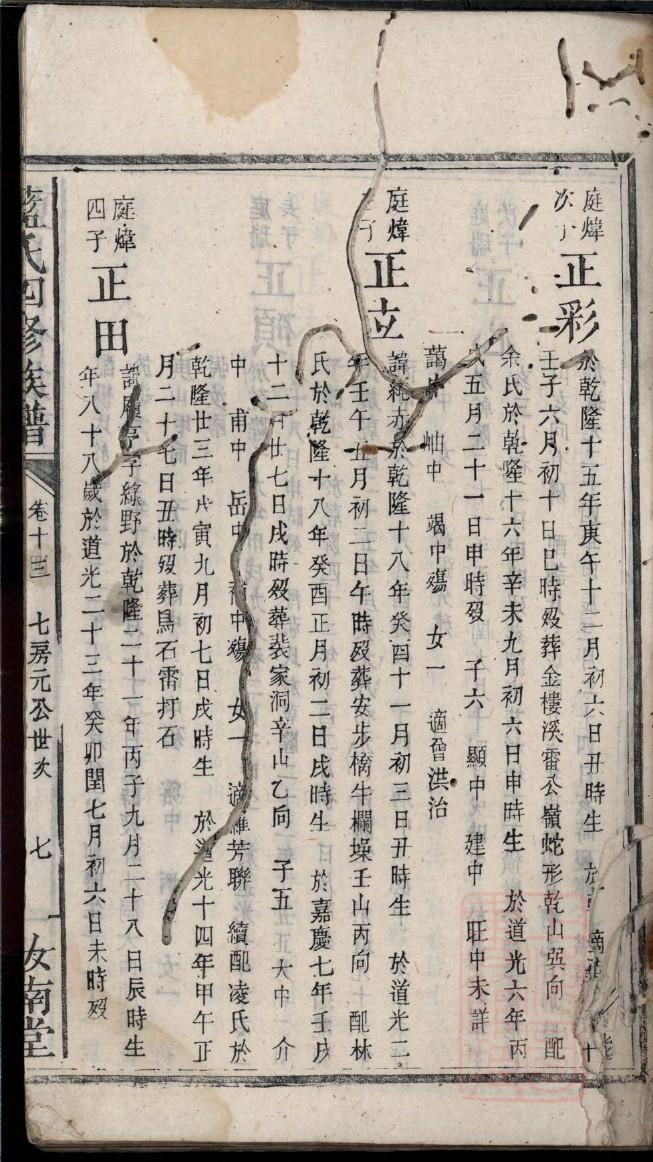 庭煒次子 正彩
於乾隆十五年庚午十二月初六日丑時生 於
壬子六月初十日巳時歿葬金樓溪雷公嶺蛇形乾山巽向 配
余氏於乾隆十六年辛未九月初六日申時生 於道光六年丙
戌五月二十一日申時歿 子六 顯中 建中 旺中未詳
岫中 竭中殤 女一 適曾洪治
庭煒 子 正立
諱純赤於乾隆十八年癸酉十一月初三日丑時生 於道光二
年壬午五月初二日午時歿葬安步橋牛欄墺壬山丙向 配林
氏於乾隆十八年癸酉正月初二日戌時生 於嘉慶七年壬戌
十二月廿七日戌時歿葬裴家洞辛山乙向 子五 大中 介
中 甫中 岳中 中殤 女一 適羅芳聯 續配凌氏於
乾隆廿三年戊寅九月初七日戌時生 於道光十四年甲午正
月二十七日丑時歿葬鳥石雷打石
庭煒四子 正田
諱 亭字綠野於乾隆二十一年丙子九月二十八日辰時生
年八十八歲於道光二十三年癸卯閏七月初六日未時歿
藍氏四修族譜 卷十三 七房元公世次 七 汝南堂